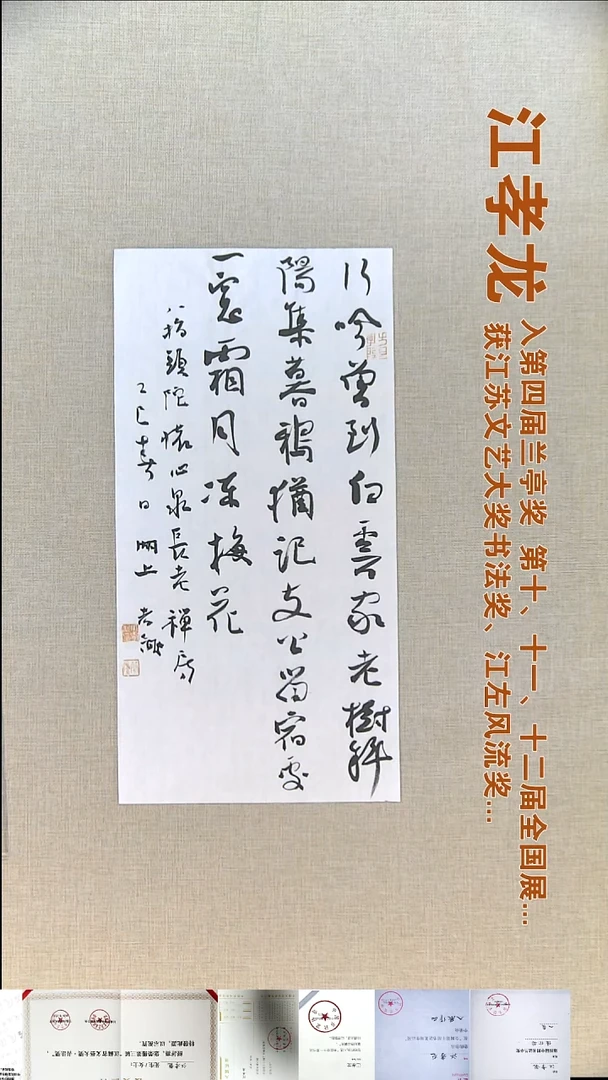 江孝龙
入第四届兰亭奖 第十、十一、十二届全国展...
获江苏文艺大奖书法奖、江左风流奖...
行吟曾到白雲家老樹斜
陽集暮鴉猶記支公留宿處
一窗霜月凍梅花
八指頭陀懷心泉長老禪房
乙巳春日 上 孝龍